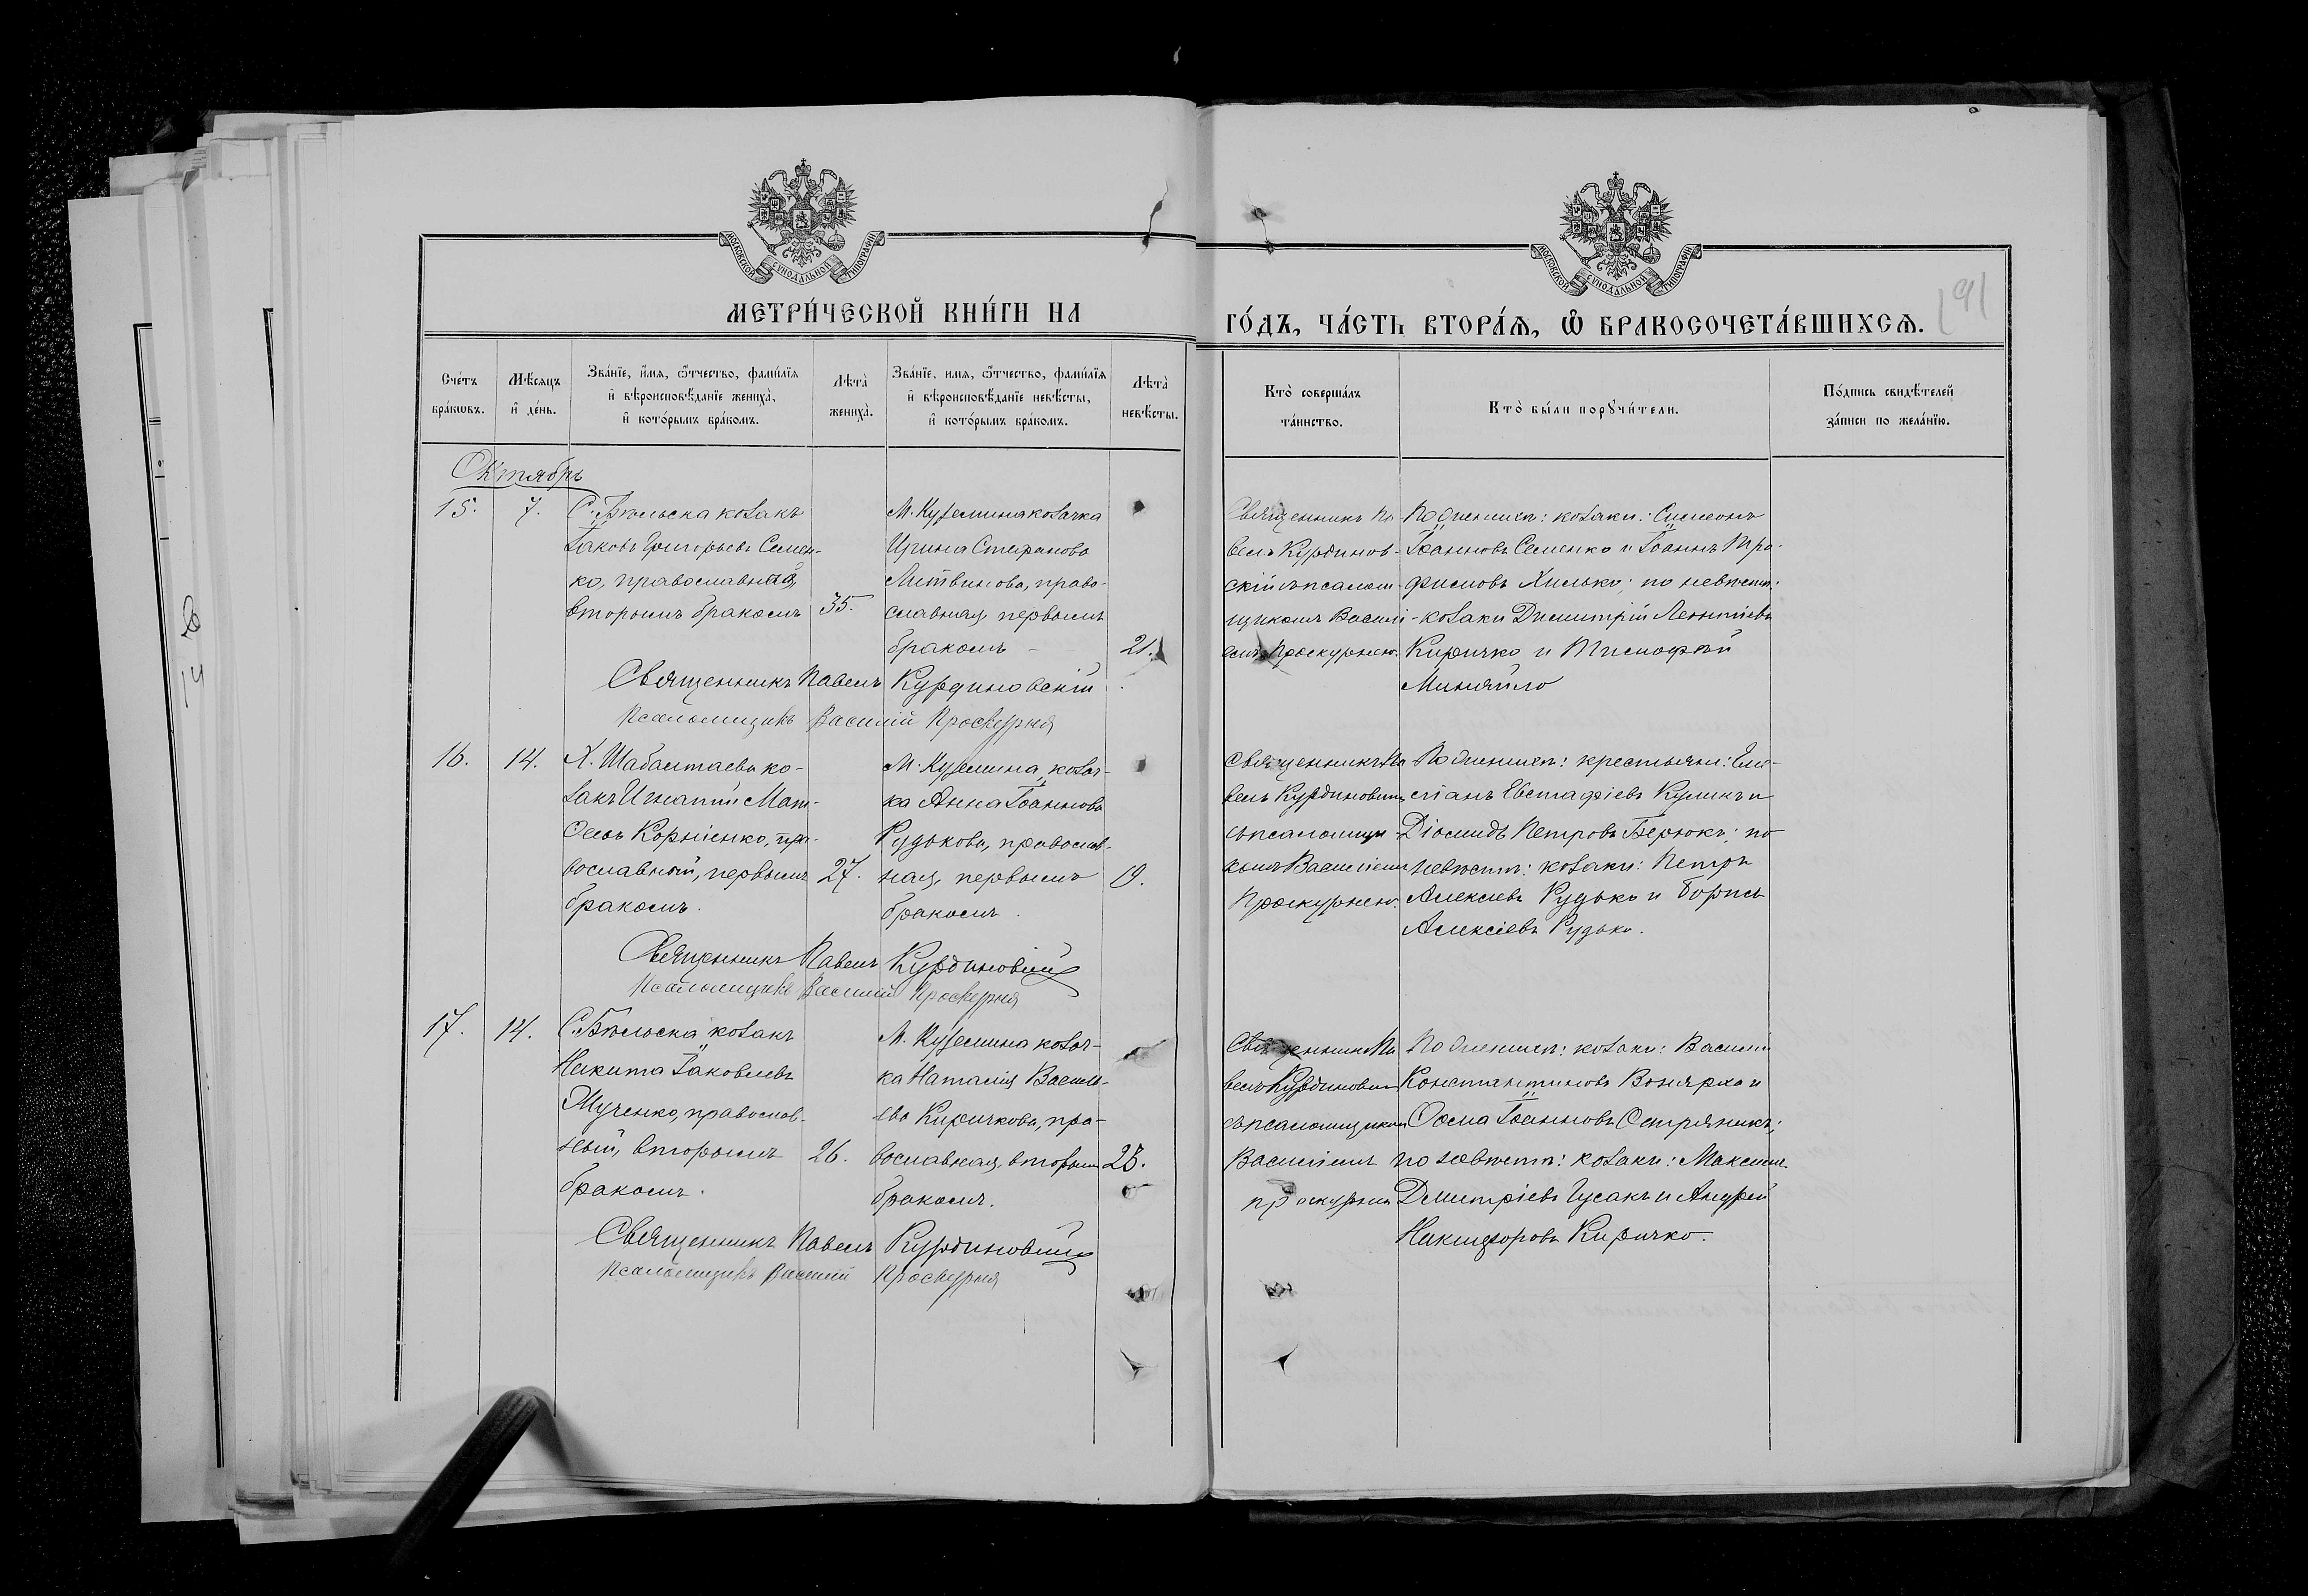 МОСКОВСКОЙ СУНОДАЛЬНОЙ ТИПОГРАФІИ
МОСКОВСКОЙ СУНОДАЛЬНОЙ ТИПОГРАФІИ
МЕТРИ́ЧЕСКОЙ КНИ́ГИ НА
ГО́ДЪ, ЧА́СТЬ ВТОРА́Ѧ, Ѡ БРАКОСОЧЕТА́ВШИХСѦ.
191
Сче́тъ бра́кѡвъ.
Мѣ́сѧцъ и҆ де́нь.
Зва́нїе, и҆́мѧ, ѻ҆́тчество, фами́лїѧ
и҆ вѣроисповѣ́данїе жениха̀,
и҆ кото́рымъ бра́комъ.
Лѣта̀ жениха̀.
Зва́нїе, имѧ, ѻ҆́тчество, фами́лїѧ
и҆ вѣроисповѣ́данїе невѣ́сты,
и҆ кото́рымъ бра́комъ.
Лѣта̀ невѣ́сты.
Кто̀ соверша́лъ
та́инство.
Кто̀ бы́ли порꙋчи́тели.
По́дпись свидѣ́телей
за́писи по жела́нїю.
Октябрь
15.
7.
С. Бѣльска козакъ
Іаковъ Григорьевъ Семен-
ко, православный,
вторымъ бракомъ
35.
М. Куземина козачка
Ирина Стефанова
Литвинова, право-
славная, первымъ
бракомъ
21.
Священникъ Па
велъ Курдинов-
скій съ псалом-
щикомъ Василі-
емъ Проскурнею.
По женихѣ: козаки: Симеонъ
Іоанновъ Семенко и Іоаннъ Тро-
фимовъ Хилько; по невѣстѣ:
козаки Димитрій Леонтіевъ
Киричко и Тимофей
Миняйло
Священникъ Павелъ Курдиновскій
Псаломщикъ Василій Проскурня
16.
14.
Х. Шабалтаева ко-
закъ Игнатій Мат-
ѳеевъ Корніенко, пра-
вославный, первымъ
бракомъ.
27.
М. Куземина козач-
ка Анна Іоаннова
Рудькова, православ-
ная, первымъ
бракомъ.
19.
Священникъ Па
велъ Курдиновскій
съ псаломщи-
комъ Василіемъ
Проскурнею.
По женихѣ: крестьяни: Еми-
ліанъ Евстафіевъ Куликъ и
Діомидъ Петровъ Бержокъ; по
невѣстѣ: козаки: Петръ
Алексіевъ Рудько и Борисъ
Алексіевъ Рудько.
Священникъ Павелъ Курдиновскій
Псаломщикъ Василій Проскурня
17.
14.
С. Бѣльска козакъ
Никита Іаковлевъ
Мученко, православ-
ный, вторымъ
бракомъ.
26.
М. Куземина козач-
ка Наталія Василь-
ева Киричкова, пра-
вославная, вторымъ
бракомъ.
28.
Священникъ Па
велъ Курдиновскій
съ псаломщикомъ
Василіемъ
Проскурнею
По женихѣ: козаки: Василій
Константиновъ Бондарко и
Ѳома Іоанновъ Остряникъ;
по невѣстѣ: козаки: Максимъ
Дмитріевъ Гусакъ и Андрей
Никифоровъ Киричко.
Священникъ Павелъ Курдиновскій
Псаломщикъ Василій Проскурня